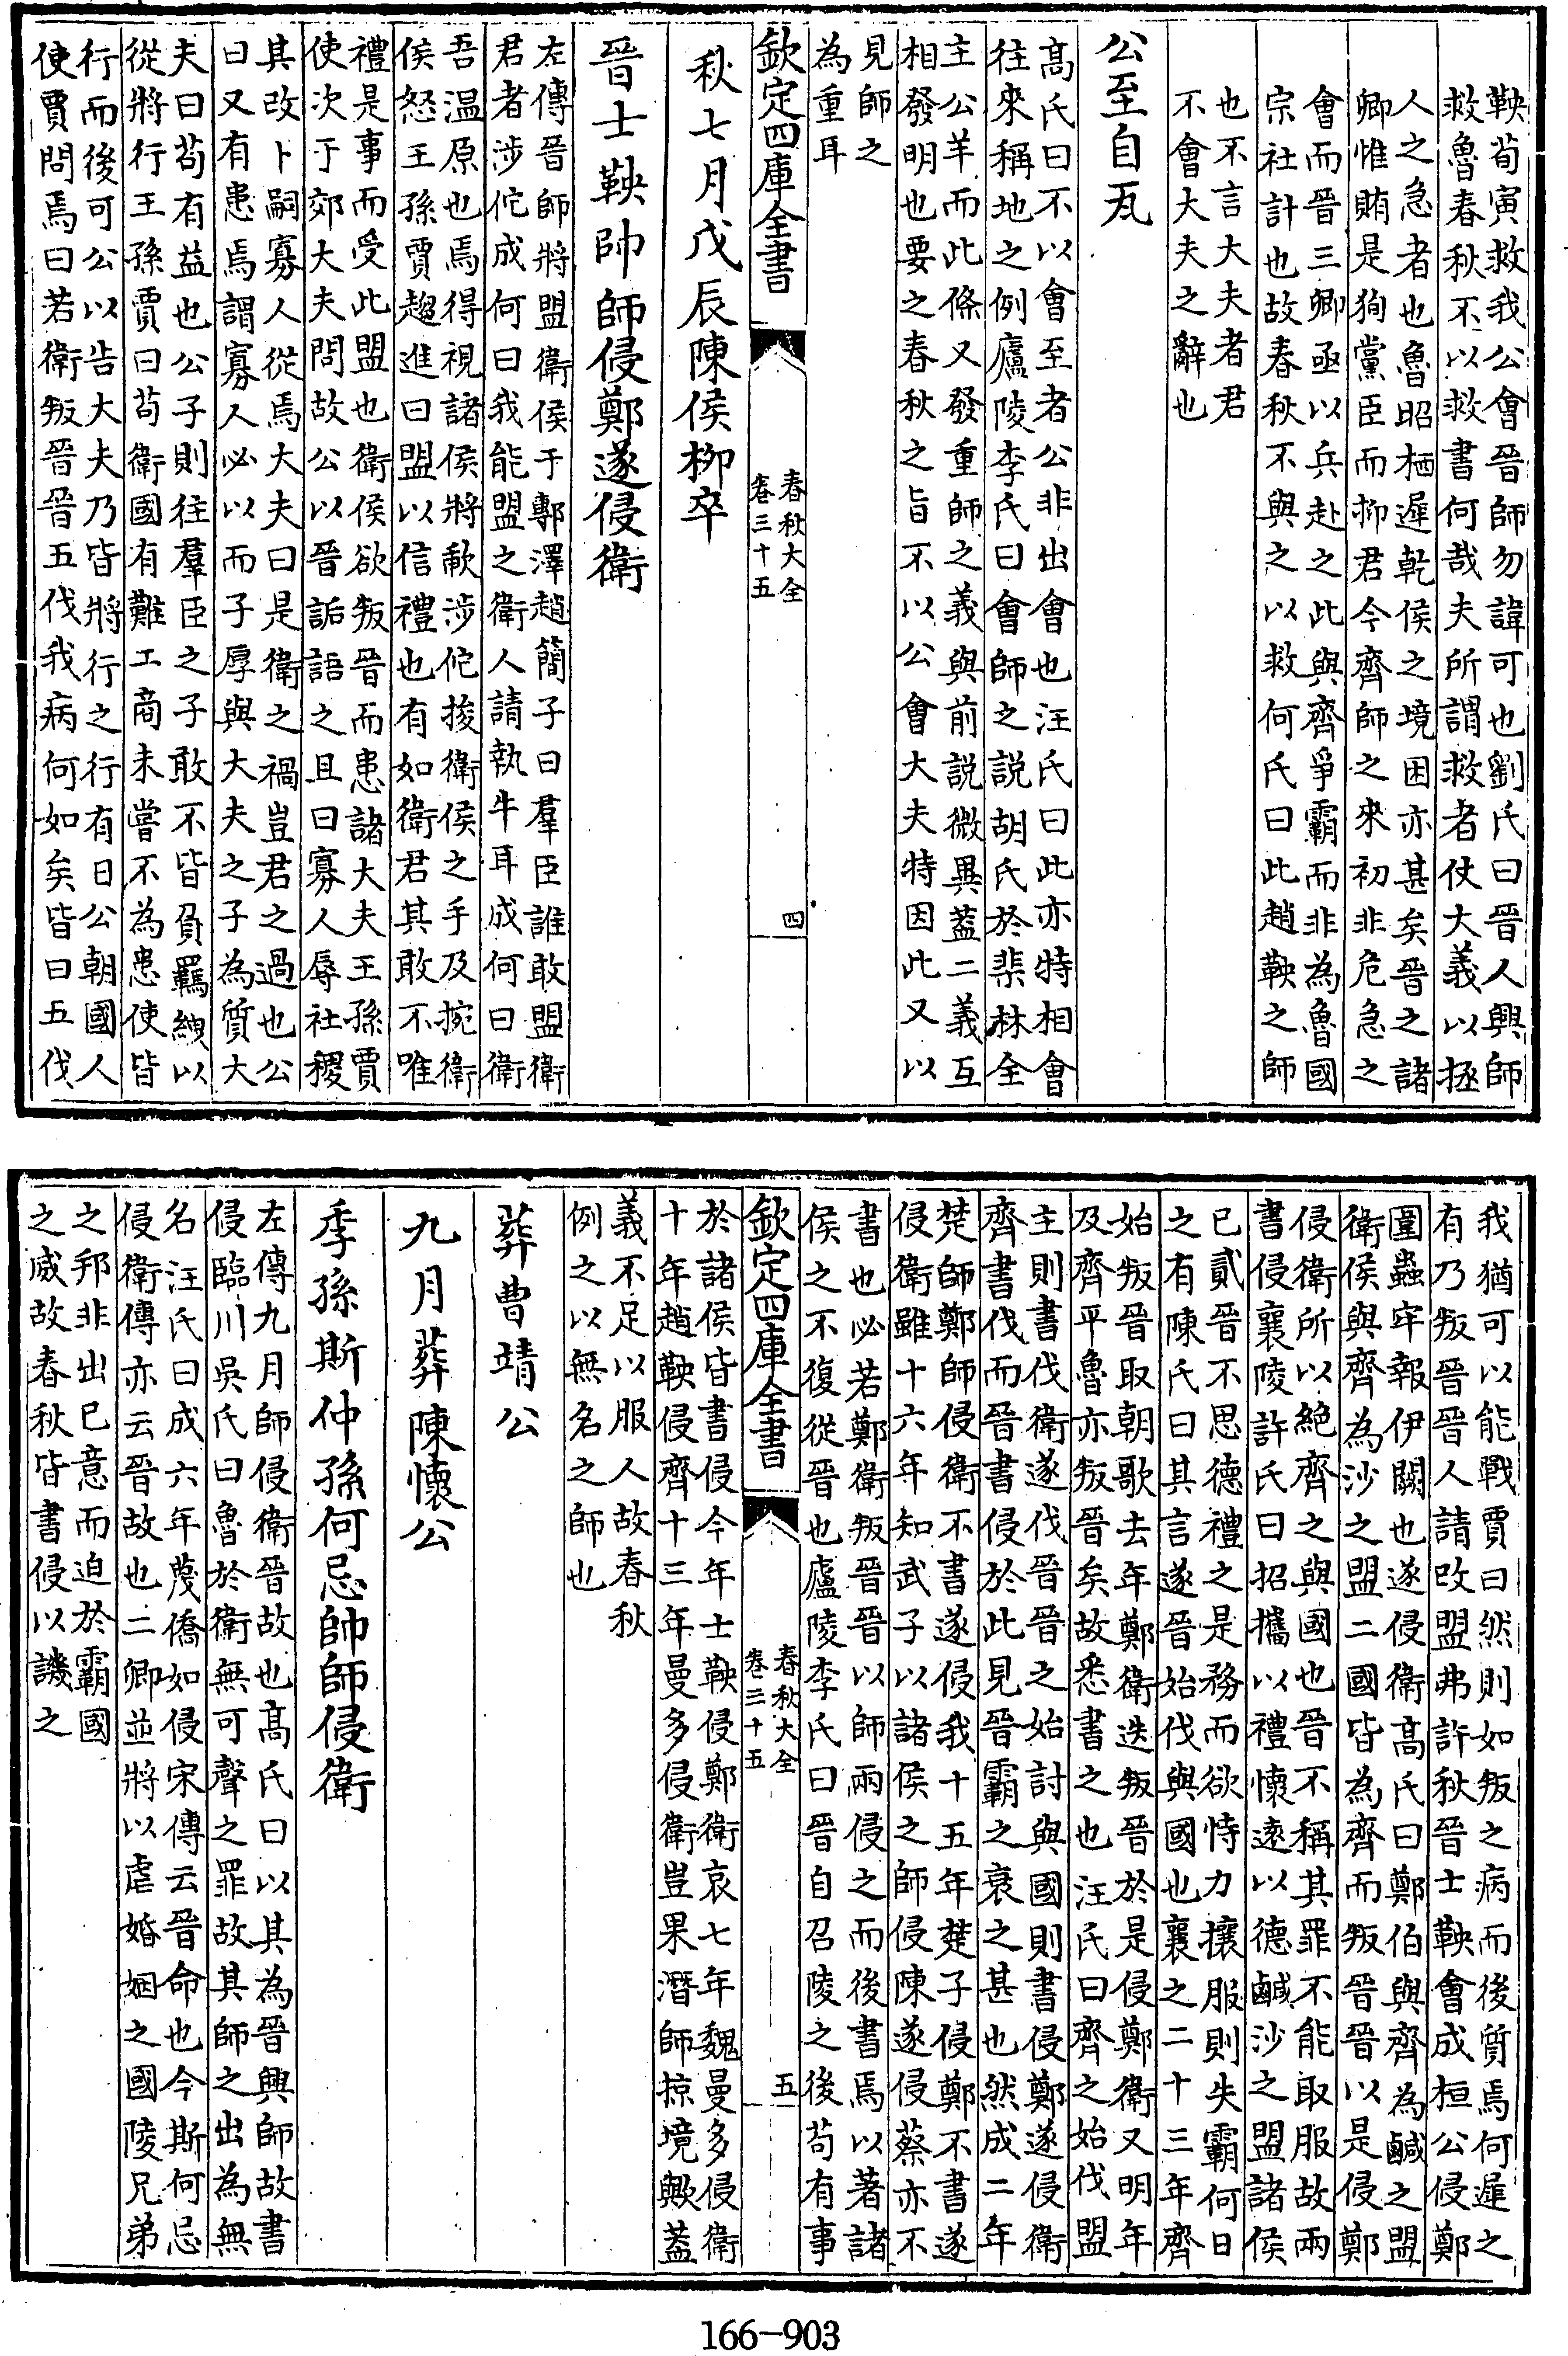 鞅荀寅救我公會晉師勿諱可也劉氏曰晉人興師
救魯春秋不以救書何哉夫所謂救者仗大義以拯
人之急者也魯昭栖遲乾侯之境困亦甚矣晉之諸
卿惟賄是狥黨臣而抑君今齊師之來初非危急之
會而晉三卿亟以兵赴之此與齊爭霸而非為魯國
宗社計也故春秋不與之以救何氏曰此趙鞅之師
也不言大夫者君
不會大夫之辭也
公至自瓦
髙氏曰不以會至者公非出會也汪氏曰此亦特相會
往來稱地之例廬陵李氏曰會師之説胡氏於棐林全
主公羊而此條又發重師之義與前説微異葢二義互
相發明也要之春秋之旨不以公會大夫特因此又以
見師之
為重耳
欽定四庫全書
春秋大全
卷三十五
四
秋七月戊辰陳侯柳卒
晉士鞅帥師侵鄭遂侵衛
左傳晉師將盟衛侯于鄟澤趙簡子曰羣臣誰敢盟衛
君者涉佗成何曰我能盟之衛人請執牛耳成何曰衛
吾温原也焉得視諸侯將歃涉佗捘衛侯之手及捥衛
侯怒王孫賈趨進曰盟以信禮也有如衛君其敢不唯
禮是事而受此盟也衛侯欲叛晉而患諸大夫王孫賈
使次于郊大夫問故公以晉詬語之且曰寡人辱社稷
其改卜嗣寡人從焉大夫曰是衛之禍豈君之過也公
曰又有患焉謂寡人必以而子厚與大夫之子為質大
夫曰苟有益也公子則往羣臣之子敢不皆負羈絏以
從將行王孫賈曰苟衛國有難工商未嘗不為患使皆
行而後可公以告大夫乃皆將行之行有日公朝國人
使賈問焉曰若衛叛晉晉五伐我病何如矣皆曰五伐
我猶可以能戰賈曰然則如叛之病而後質焉何遲之
有乃叛晉晉人請改盟弗許秋晉士鞅會成桓公侵鄭
圍蟲牢報伊闕也遂侵衛髙氏曰鄭伯與齊為鹹之盟
衛侯與齊為沙之盟二國皆為齊而叛晉晉以是侵鄭
侵衛所以絶齊之與國也晉不稱其罪不能取服故兩
書侵襄陵許氏曰招攜以禮懷逺以德鹹沙之盟諸侯
已貳晉不思德禮之是務而欲恃力攘服則失霸何日
之有陳氏曰其言遂晉始伐與國也襄之二十三年齊
始叛晉取朝歌去年鄭衛迭叛晉於是侵鄭衛又明年
及齊平魯亦叛晉矣故悉書之也汪氏曰齊之始伐盟
主則書伐衛遂伐晉晉之始討與國則書侵鄭遂侵衛
齊書伐而晉書侵於此見晉霸之衰之甚也然成二年
楚師鄭師侵衛不書遂侵我十五年楚子侵鄭不書遂
侵衛雖十六年知武子以諸侯之師侵陳遂侵蔡亦不
書也必若鄭衛叛晉晉以師兩侵之而後書焉以著諸
侯之不復從晉也廬陵李氏曰晉自召陵之後苟有事
欽定四庫全書
春秋大全
卷三十五
五
於諸侯皆書侵今年士鞅侵鄭衛哀七年魏曼多侵衛
十年趙鞅侵齊十三年曼多侵衛豈果潛師掠境歟葢
義不足以服人故春秋
例之以無名之師也
葬曹靖公
九月葬陳懷公
季孫斯仲孫何忌帥師侵衛
左傳九月師侵衛晉故也髙氏曰以其為晉興師故書
侵臨川吳氏曰魯於衛無可聲之罪故其師之出為無
名汪氏曰成六年蔑僑如侵宋傳云晉命也今斯何忌
侵衛傳亦云晉故也二卿並將以虐婚姻之國陵兄弟
之邦非出已意而迫於霸國
之威故春秋皆書侵以譏之
166-903